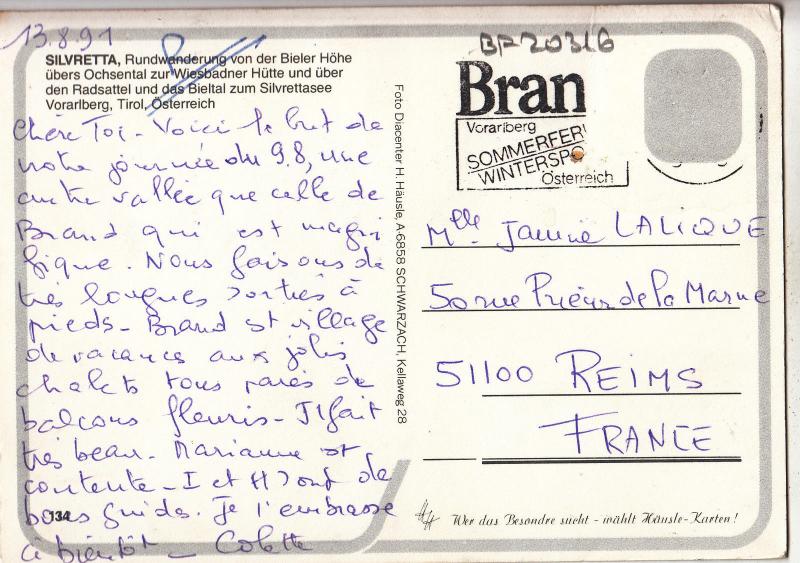 13.8.91
SILVRETTA, Rundwanderung von der Bieler Höhe
übers Ochsental zur Wiesbadner Hütte und über
den Radsattel und das Bieltal zum Silvrettasee
Vorarlberg, Tirol, Österreich
Chère Toi - Voici le but de
notre journée du 9.8, une
autre vallée que celle de
Brand qui est magni
fique. Nous faisons de
très longues sorties à
pieds - Brand est village
de vacances aux jolis
chalets tous parés de
balcons fleuris - Il fait
très beau. Marianne est
contente - I et H sont de
bons guides. Je t'embrasse
à bientôt - Colette
134
Foto Diacenter H. Häusle, A-6858 SCHWARZACH, Kellaweg 28
BF 20316
Bran
Vorarlberg
SOMMERFER
WINTERSPO
Österreich
Mlle Janine LALIQUE
50 rue Prieur de la Marne
51100 REIMS
FRANCE
HH Wer das Besondre sucht - wählt Häusle-Karten!